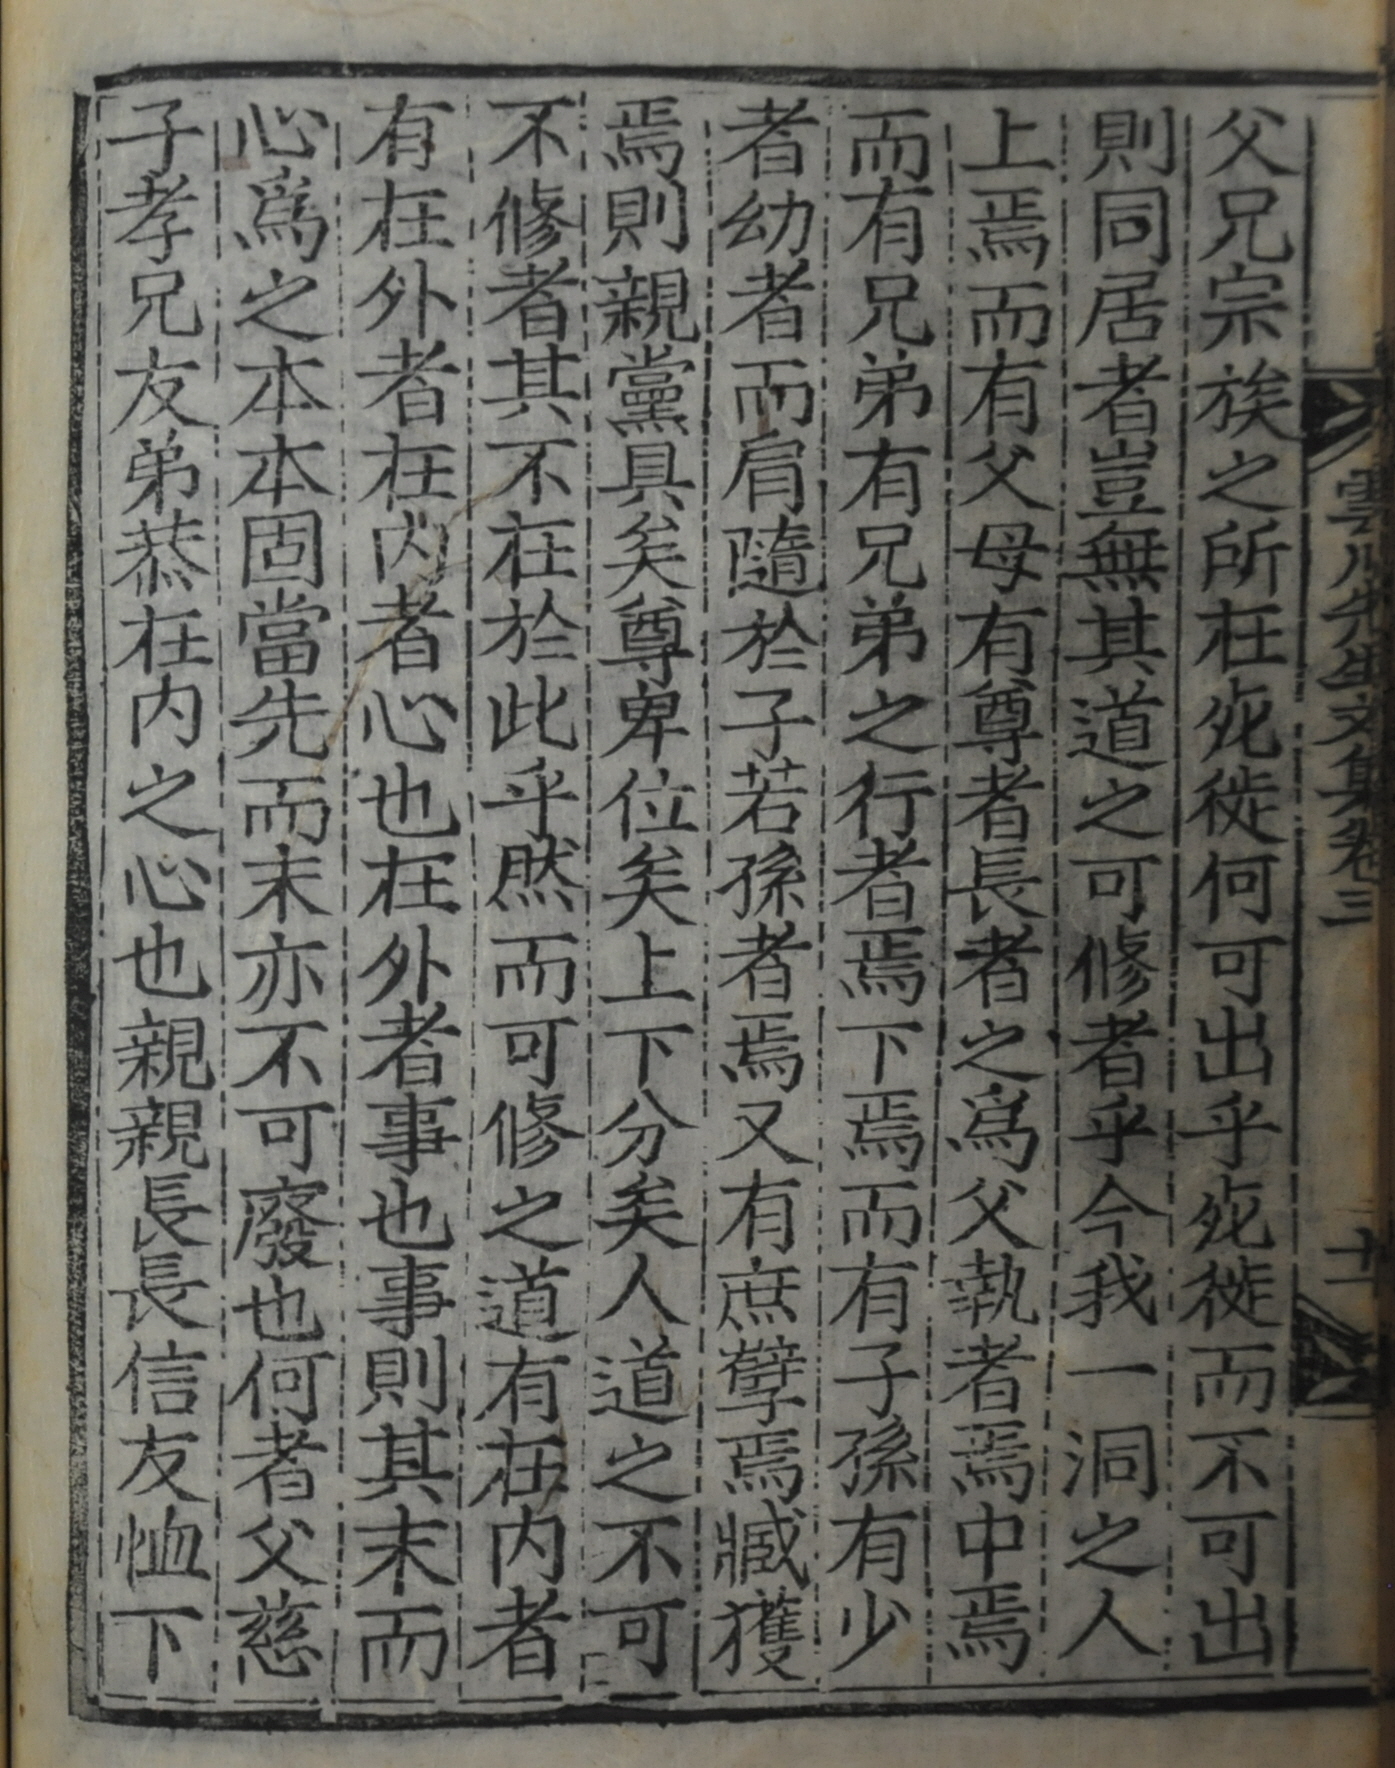 雲川先生文集卷三
十一
父兄宗族之所在死徙何可出乎死徙而不可出
則同居者豈無其道之可修者乎今我一洞之人
上焉而有父母有尊者長者之爲父執者焉中焉
而有兄弟有兄弟之行者焉下焉而有子孫有少
者幼者而肩隨於子若孫者焉又有庶孽焉臧獲
焉則親黨具矣尊卑位矣上下分矣人道之不可
不修者其不在於此乎然而可修之道有在内者
有在外者在内者心也在外者事也事則其末而
心爲之本本固當先而末亦不可廢也何者父慈
子孝兄友弟恭在内之心也親親長長信友恤下